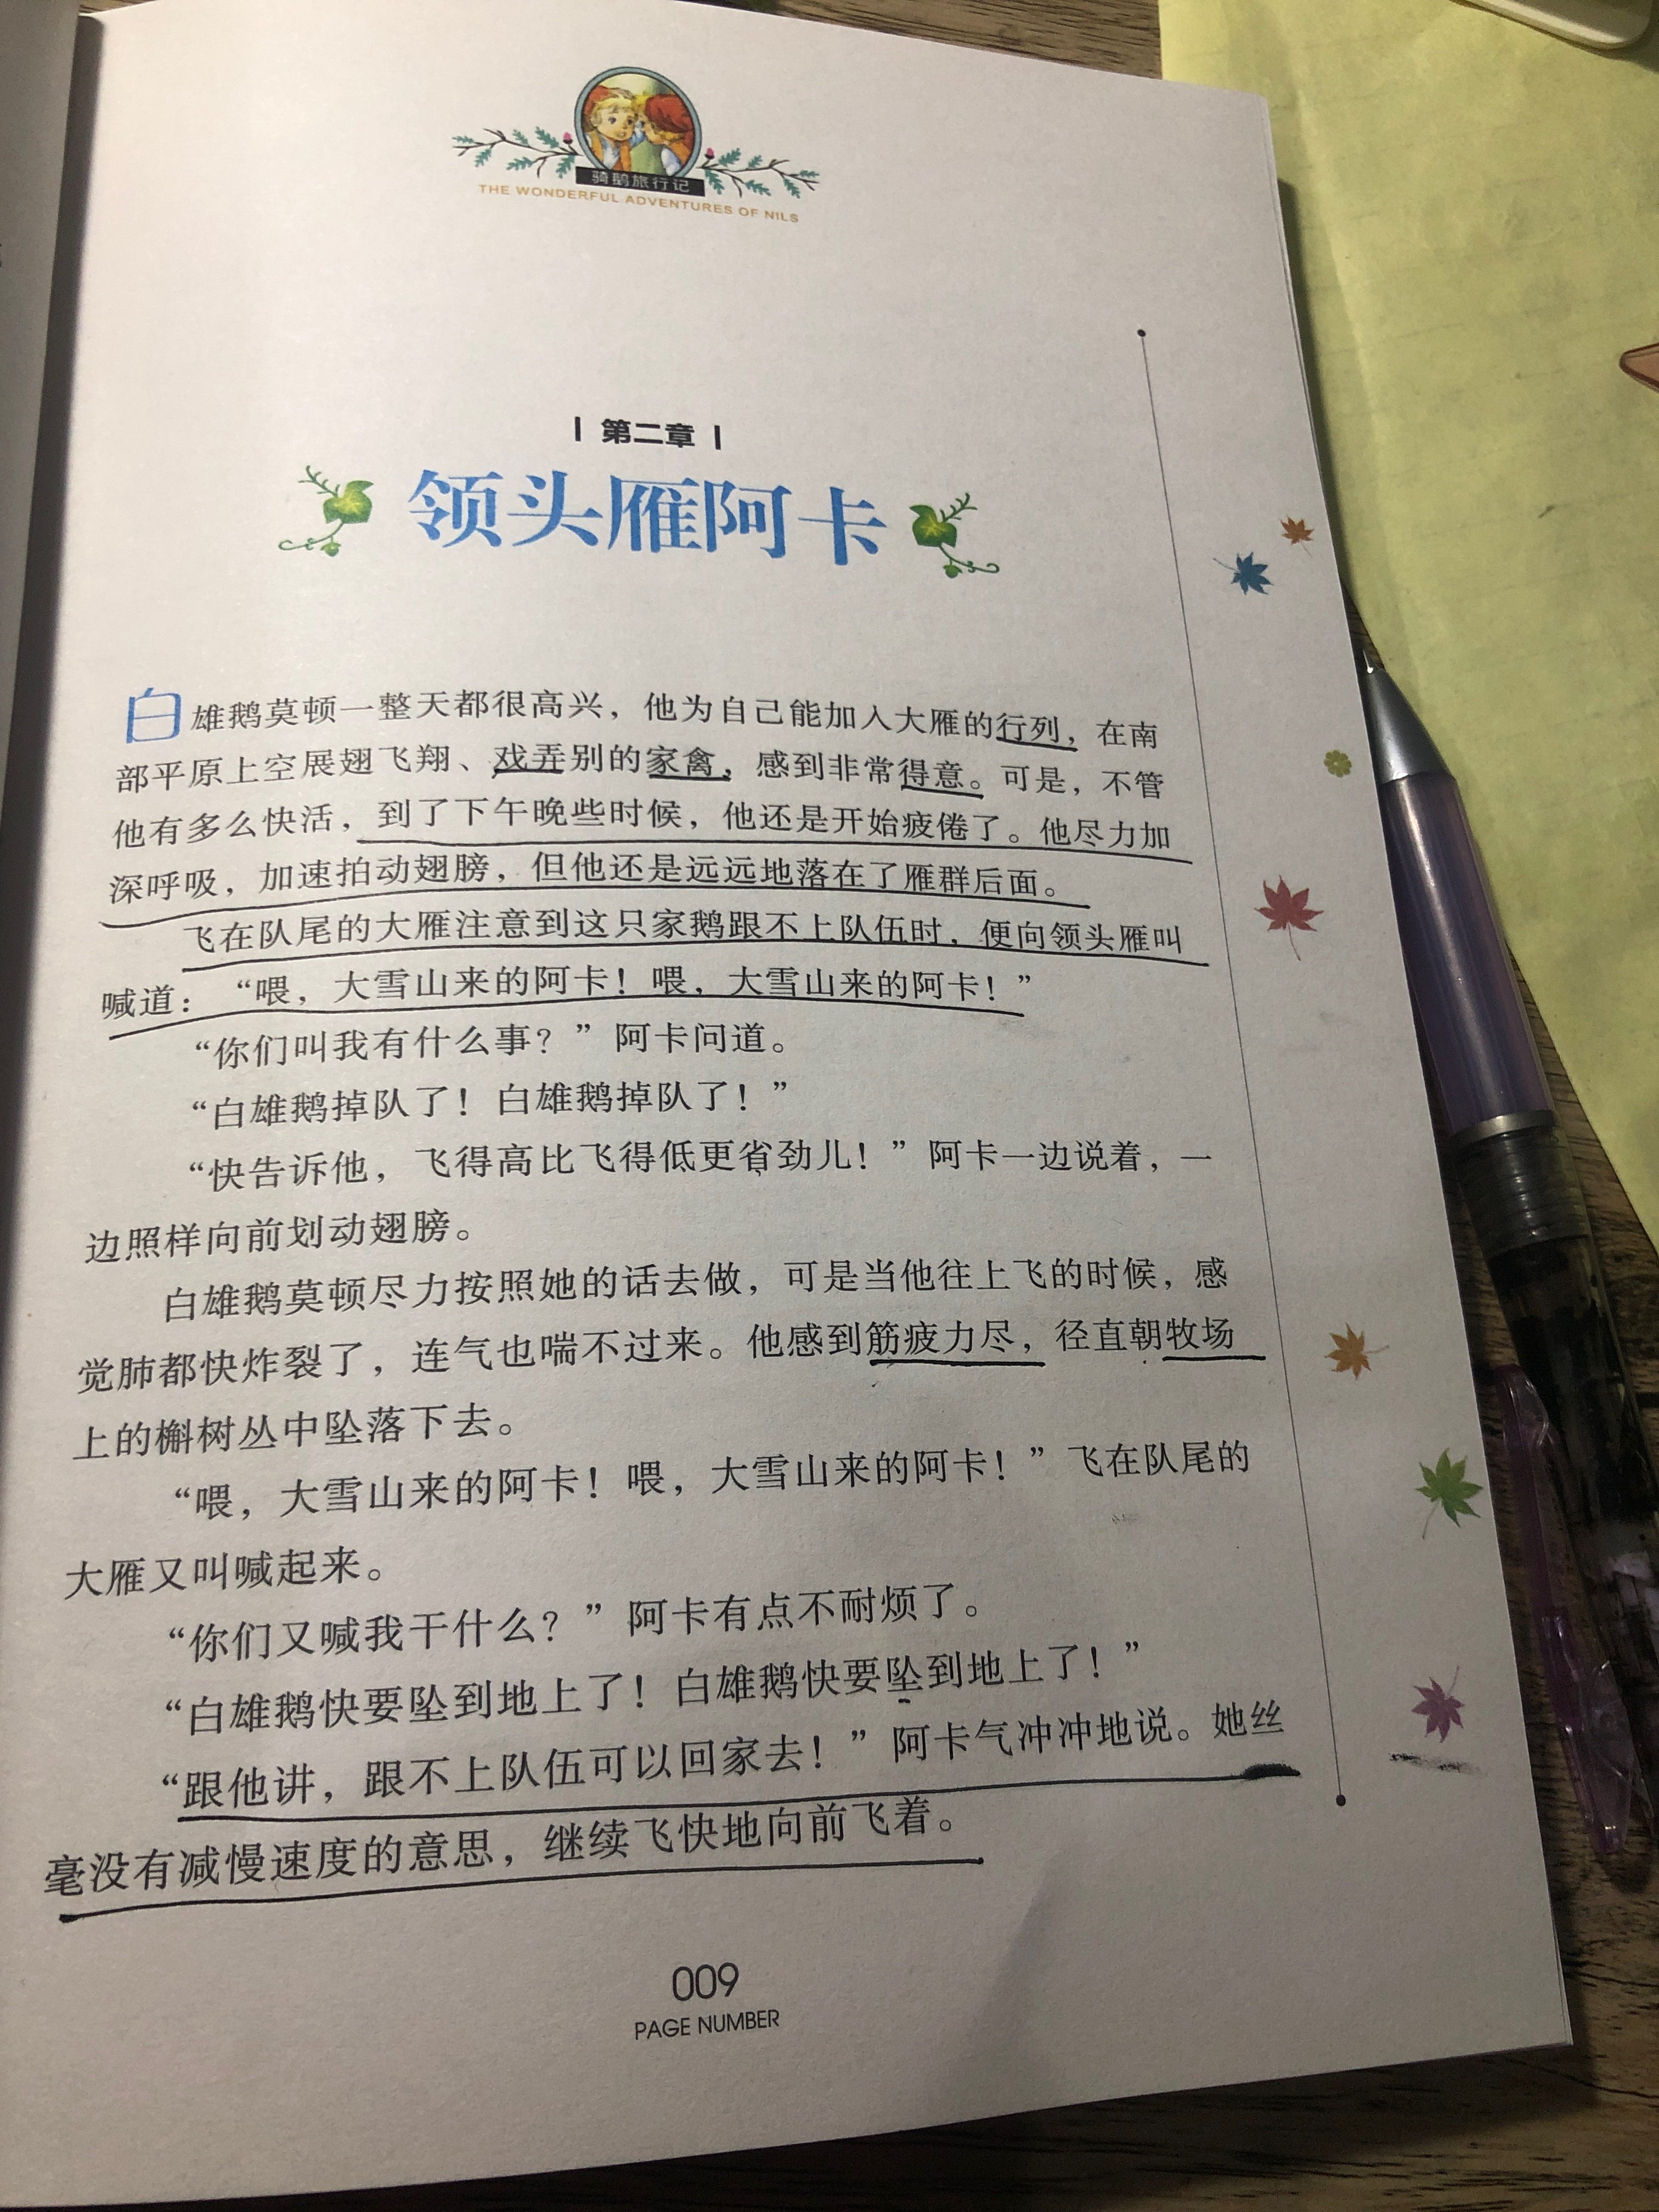 骑鹅旅行记
THE WONDERFUL ADVENTURES OF NILS
第二章
领头雁阿卡
白雄鹅莫顿一整天都很高兴，他为自己能加入大雁的行列，在南
部平原上空展翅飞翔、戏弄别的家禽，感到非常得意。可是，不管
他有多么快活，到了下午晚些时候，他还是开始疲倦了。他尽力加
深呼吸，加速拍动翅膀，但他还是远远地落在了雁群后面。
飞在队尾的大雁注意到这只家鹅跟不上队伍时，便向领头雁叫
喊道：“喂，大雪山来的阿卡！喂，大雪山来的阿卡！”
“你们叫我有什么事？”阿卡问道。
“白雄鹅掉队了！白雄鹅掉队了！”
“快告诉他，飞得高比飞得低更省劲儿！”阿卡一边说着，一
边照样向前划动翅膀。
白雄鹅莫顿尽力按照她的话去做，可是当他往上飞的时候，感
觉肺都快炸裂了，连气也喘不过来。他感到筋疲力尽，径直朝牧场
上的槲树丛中坠落下去。
“喂，大雪山来的阿卡！喂，大雪山来的阿卡！”飞在队尾的
大雁又叫喊起来。
“你们又喊我干什么？”阿卡有点不耐烦了。
“白雄鹅快要坠到地上了！白雄鹅快要坠到地上了！”
“跟他讲，跟不上队伍可以回家去！”阿卡气冲冲地说。她丝
毫没有减慢速度的意思，继续飞快地向前飞着。
009
PAGE NUMBER